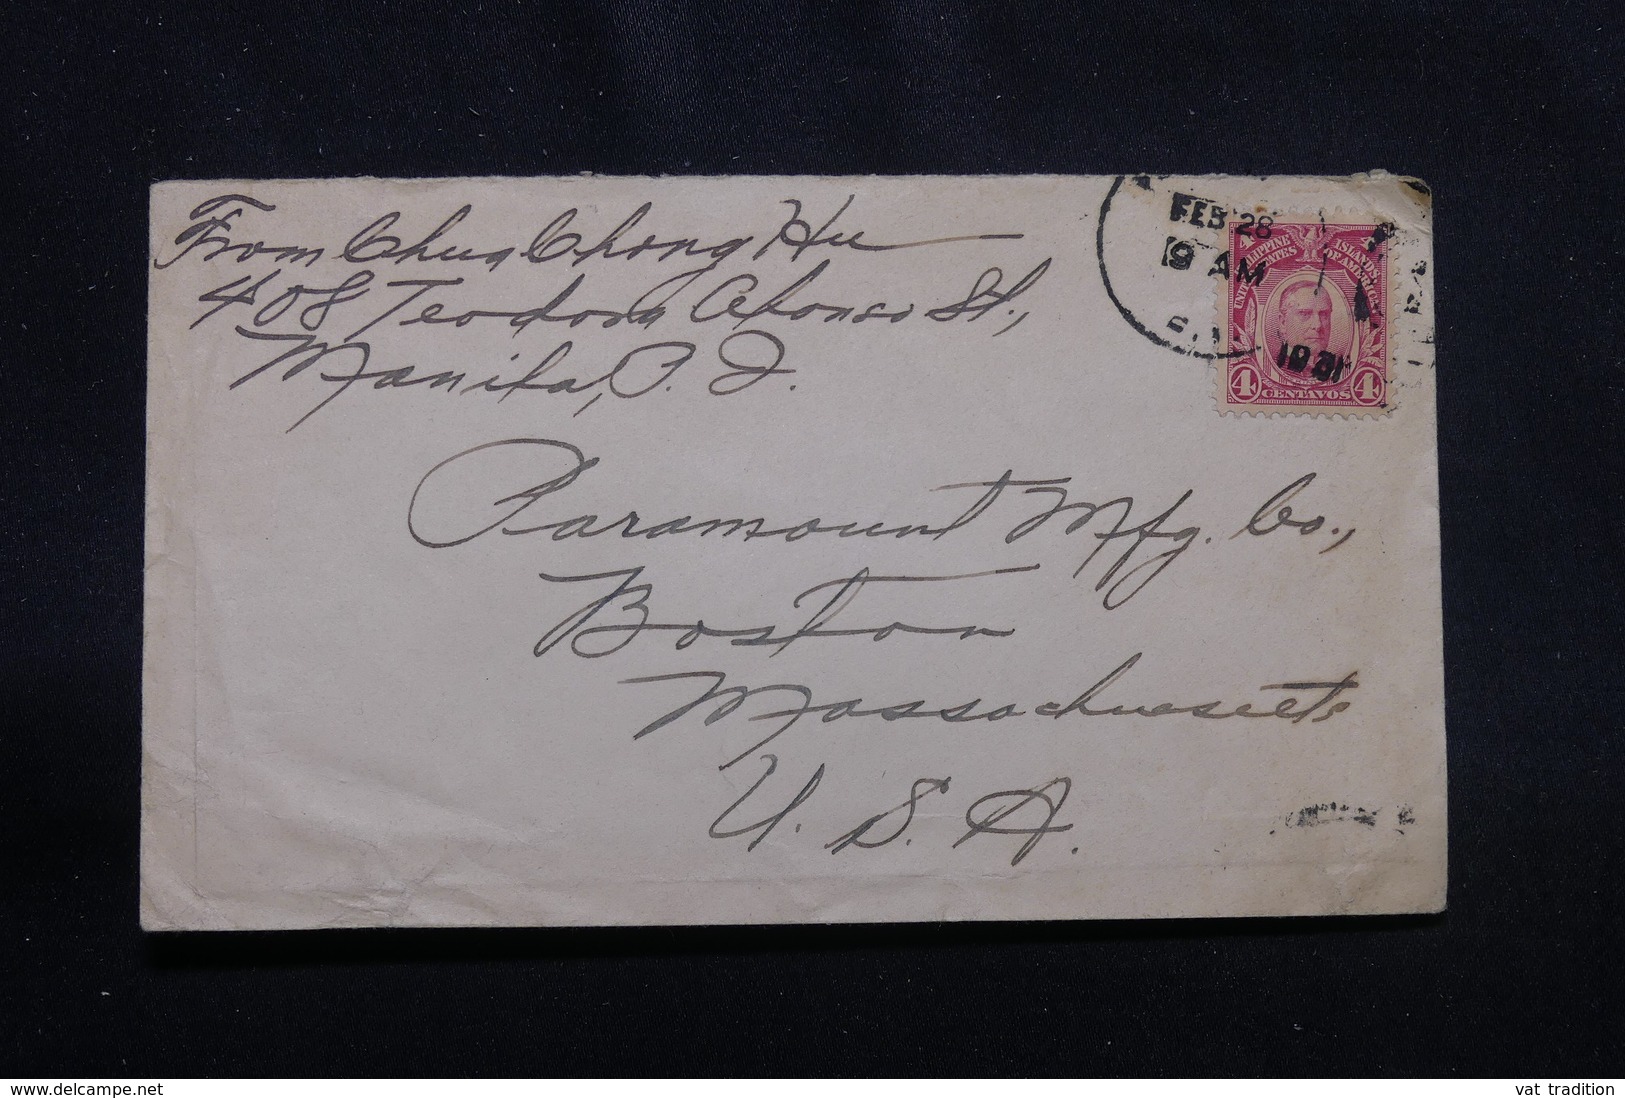 From Chua Chong Hu
408 Teodora Alonso St.,
Manila, P. I.
FEB 28
9 AM
1931
PHILIPPINE ISLANDS
UNITED STATES OF AMERICA
4 CENTAVOS 4
Paramount Mfg. Co.,
Boston
Massachusetts
U. S. A.
www.delcampe.net
vat tradition